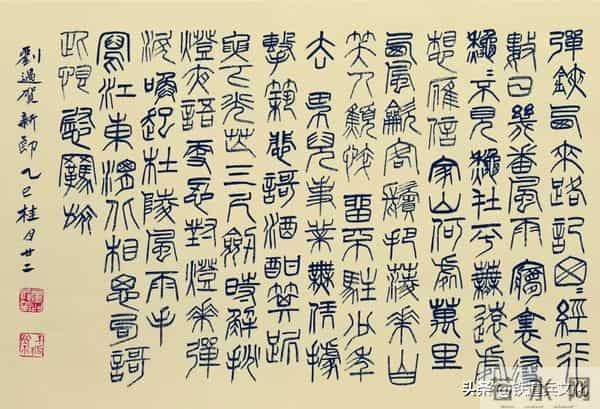 彈鋏西來路記匆匆經行
數日幾番風雨夢裏尋
穐穐不見穐在平蕪遠處
想雁信家山何處萬里
西風吹客鬢把菱花自
笑人顦悴留不住少年
去 男兒事業無憑據
擊筑悲謌酒酣箕踞
腰下光芒三尺劍時解挑
燈夜語更忍對燈花彈
淚喚起杜陵風雨手
寫江東渭北相思句謌
此恨慰羈旅
劉過賀新郎 乙巳桂月廿二
头条